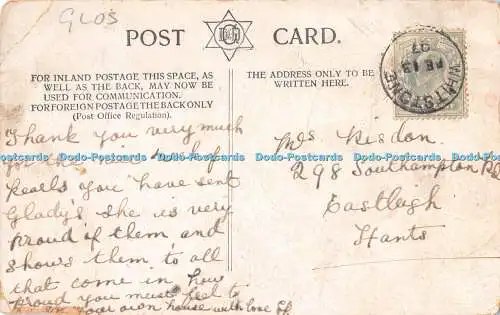 GLOS
POST CARD.
FOR INLAND POSTAGE THIS SPACE, AS
WELL AS THE BACK, MAY NOW BE
USED FOR COMMUNICATION.
FOR FOREIGN POSTAGE THE BACK ONLY
(Post Office Regulation).
THE ADDRESS ONLY TO BE
WRITTEN HERE.
WHITSTABLE
FE 13
07
Thank you very much
for the
pearls you have sent
Gladys she is very
proud of them and
shows them to all
that come in how
proud you must feel to
in your own house with love
Mrs Risdon
298 Southampton Rd
Eastleigh
Hants